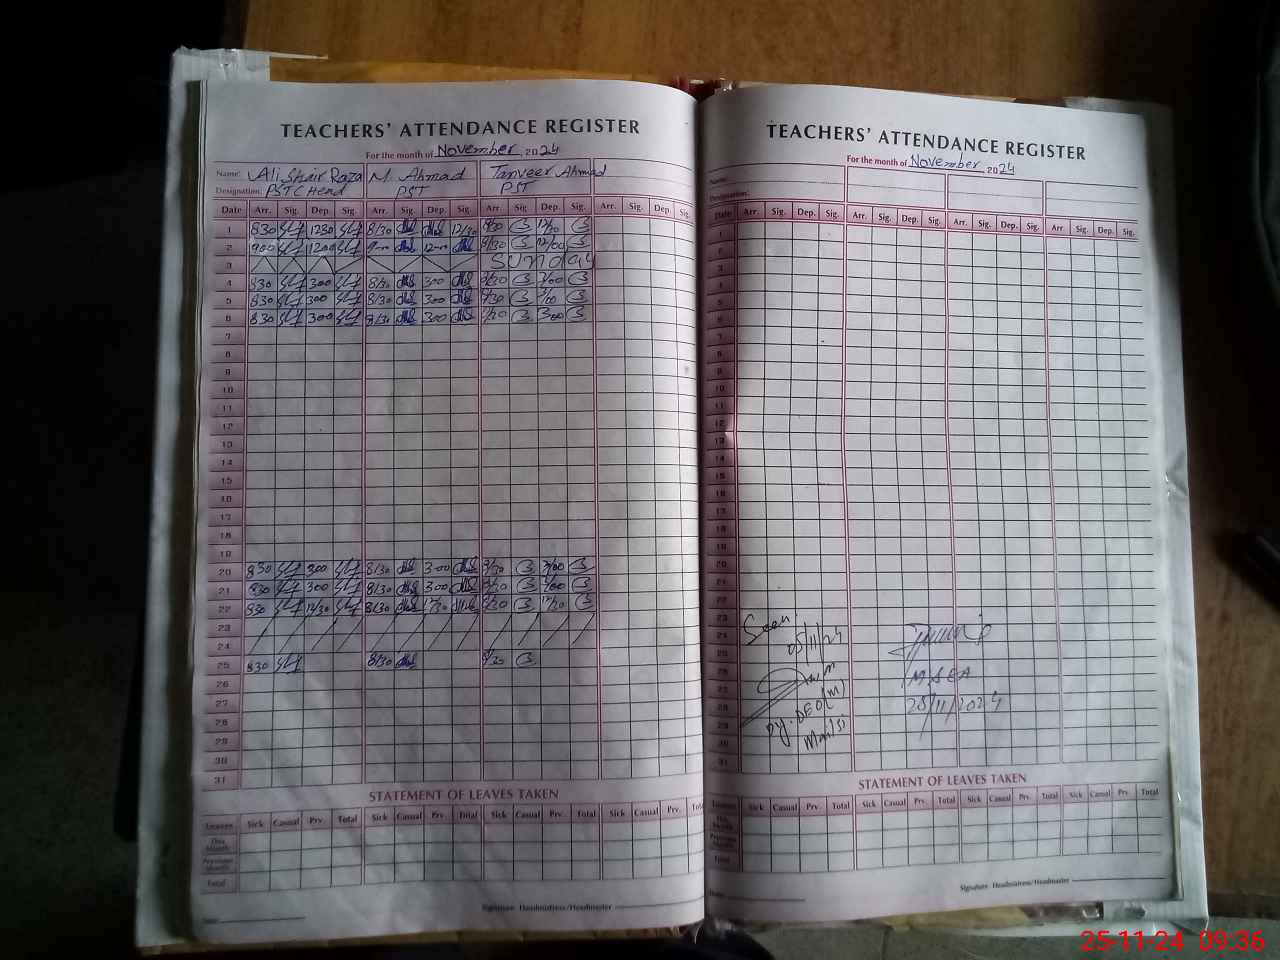 TEACHERS' ATTENDANCE REGISTER
For the month of November 2024
Name: Ali Shair Raza M. Ahmad Tanveer Ahmad
Designation: PST C Head PST PST
Date Arr. Sig. Dep. Sig. Arr. Sig Dep. Sig. Arr. Sig. Dep. Sig. Arr. Sig. Dep Sig.
1 830 1230 8/30 12/30 8/30 12/30
2 900 1200 9-00 12-00 8/30 12/00
3 SUNDAY
4 830 300 8/30 300 8/30 3/00
5 830 300 8/30 300 8/30 3/00
6 830 300 8/30 300 8/30 300
7
8
9
10
11
12
13
14
15
16
17
18
19
20 830 300 8/30 300 8/30 3/00
21 830 300 8/30 300 8/30 3/00
22 830 12/30 8/30 12/30 8/30 12/30
23
24
25 830 8/30 8/30
26
27
28
29
30
31
STATEMENT OF LEAVES TAKEN
Leaves Sick Casual Prv Total Sick Casual Prv. Total Sick Casual Prv. Total Sick Casual Prv. Total
This Month
Previous Month
Total
Signature Headmistress/Headmaster
Date
TEACHERS' ATTENDANCE REGISTER
For the month of November 2024
Name:
Designation:
Date Arr. Sig. Dep. Sig. Arr. Sig. Dep. Sig. Arr. Sig. Dep. Sig. Arr Sig. Dep. Sig.
1
2
3
4
5
6
7
8
9
10
11
12
13
14
15
16
17
18
19
20
21
22
23
24
25
26
27
28
29
30
31
Seen
05/11/24
Dy. DEO(M)
Mailsi
MEA
25/11/2024
STATEMENT OF LEAVES TAKEN
Leaves Sick Casual Prv. Total Sick Casual Prv. Total Sick Casual Prv. Total Sick Casual Prv. Total
This Month
Previous Month
Total
Signature Headmistress/Headmaster
Date
25-11-24 09:36